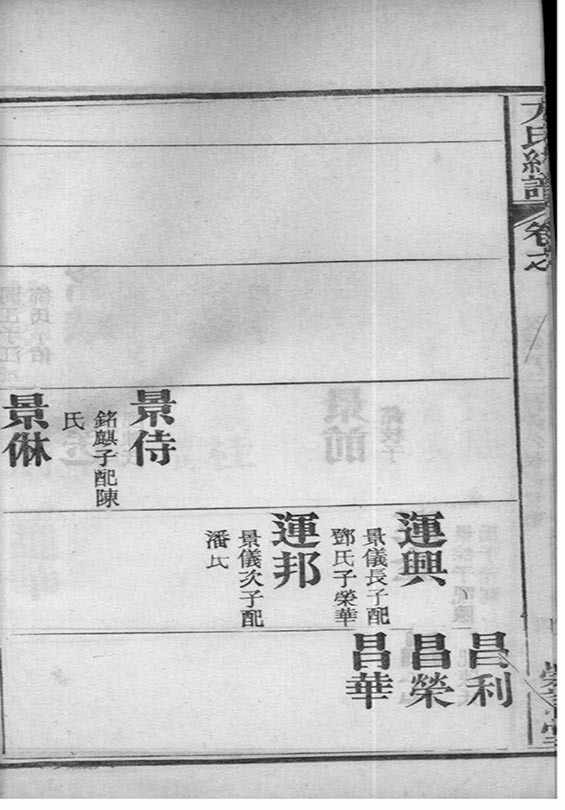 方氏統譜
卷之
景侍
銘麒子配陳
氏
景
運興
景儀長子配
鄧氏子榮華
運邦
景儀次子配
潘氏
昌利
昌榮
昌華